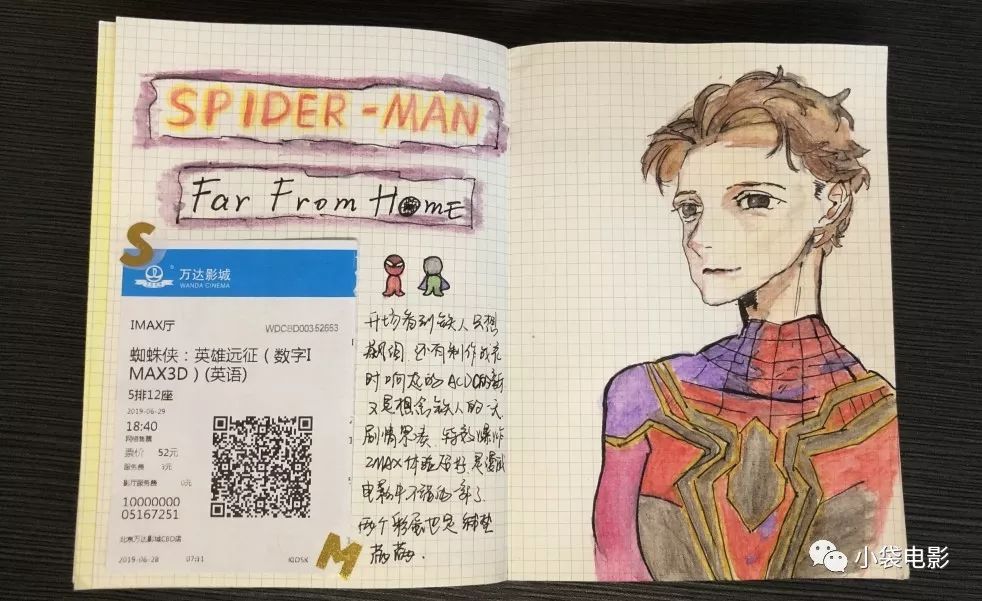 SPIDER-MAN
Far From HomE
S
万达影城
WANDA CINEMA
IMAX厅
WDCBD00352653
蜘蛛侠：英雄远征（数字I
MAX3D）(英语)
5排12座
2019-06-29
18:40
网络售票
票价 52元
服务费 3元
影厅服务费 0元
10000000
05167251
北京万达影城CBD店
2019-06-28 07:11 KIOSK
M
开场看到铁人只想
飙泪，还有制作战衣
时响起的ACDC的歌
又是想念铁人的一天
剧情果凑，特效爆炸
IMAX体验很好，是漫威
电影中不错的一部了
两个彩蛋也是铺垫
满满.
小袋电影